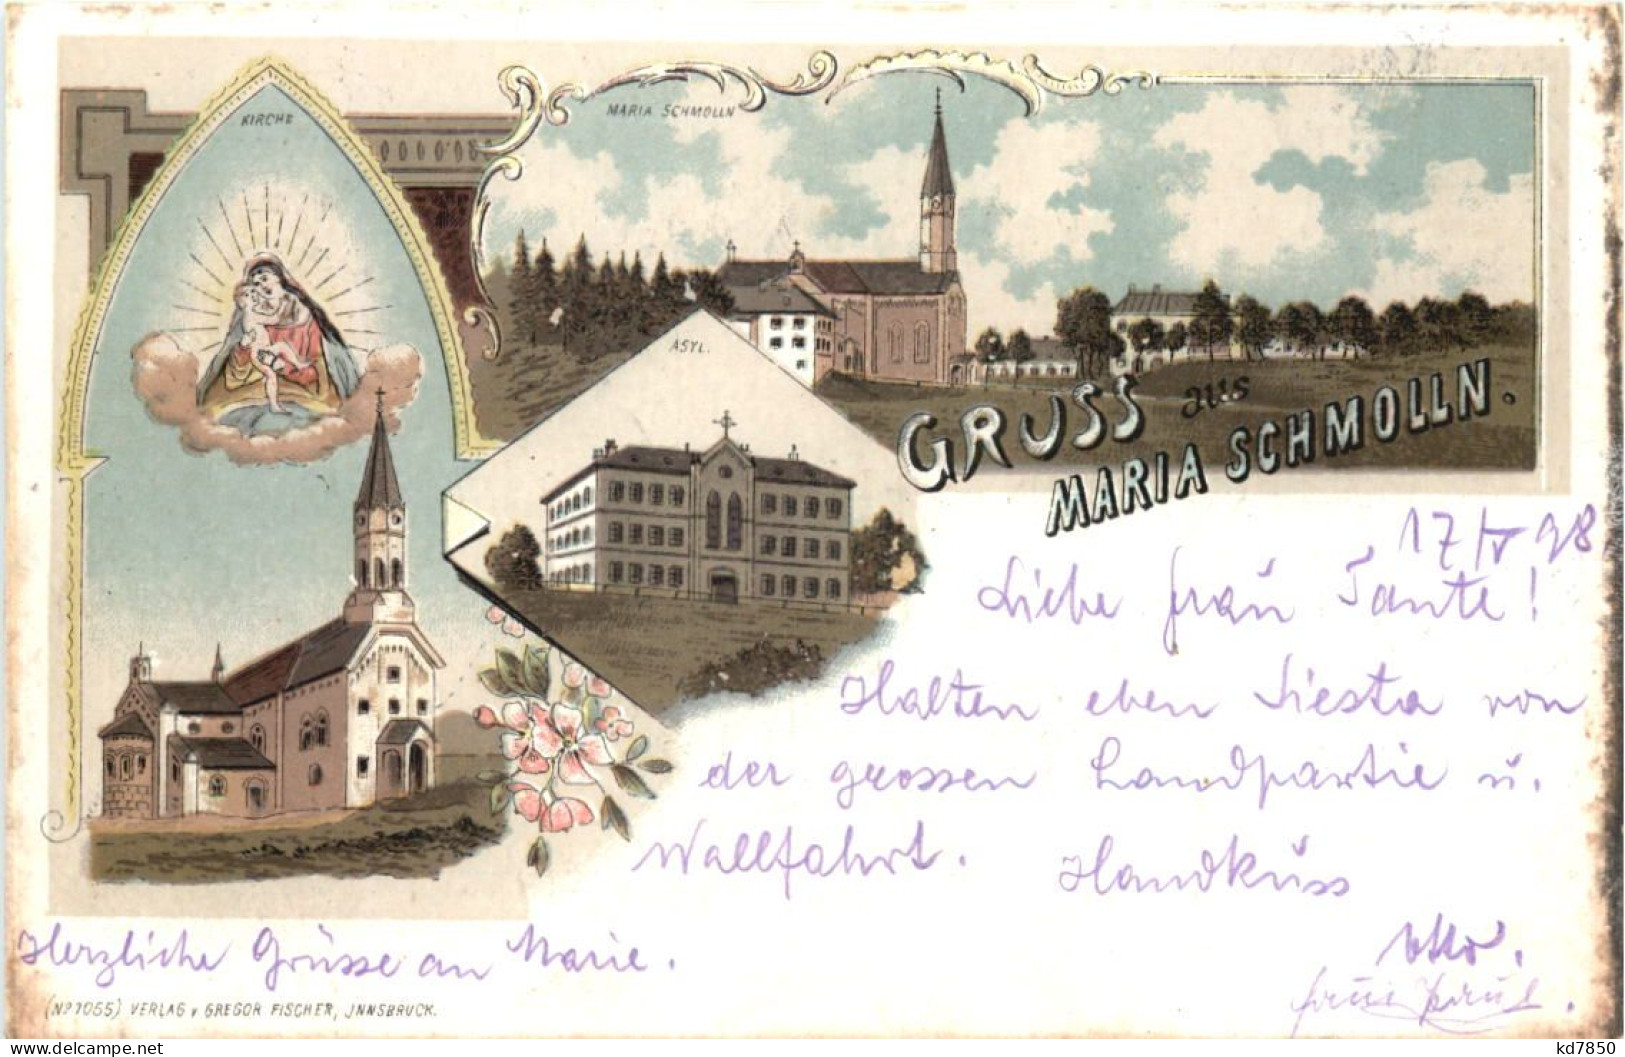 KIRCHE
MARIA SCHMOLLN
ASYL.
GRUSS aus
MARIA SCHMOLLN.
17/V 98
Liebe Frau Tante!
Halten eben Siesta von
der grossen Landpartie u.
Wallfahrt. Handkuss
Otto.
Herzliche Grüsse an Marie.
(No 7055) VERLAG v GREGOR FISCHER, JNNSBRUCK.
www.delcampe.net
kd7850